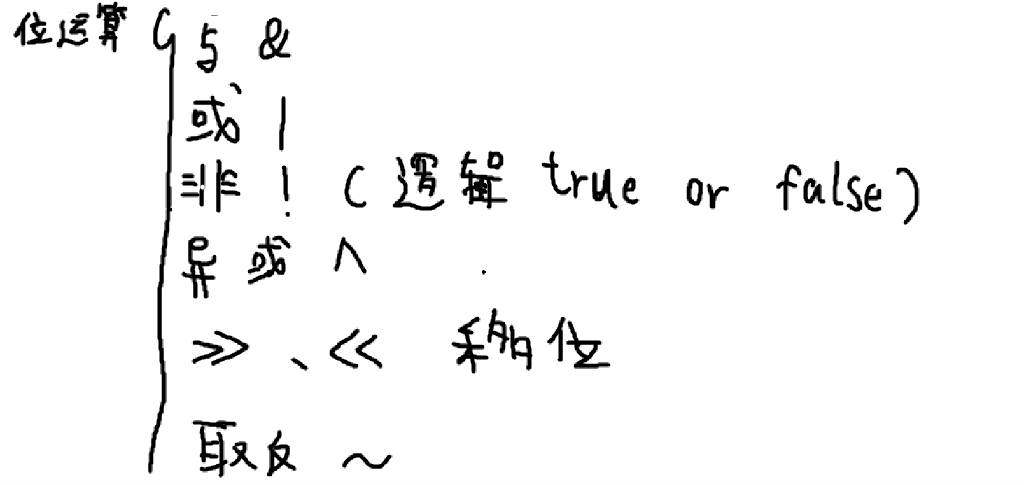 位运算 与 &
或 |
非 ! (逻辑 true or false)
异或 ^
>> 、 << 移位
取反 ~